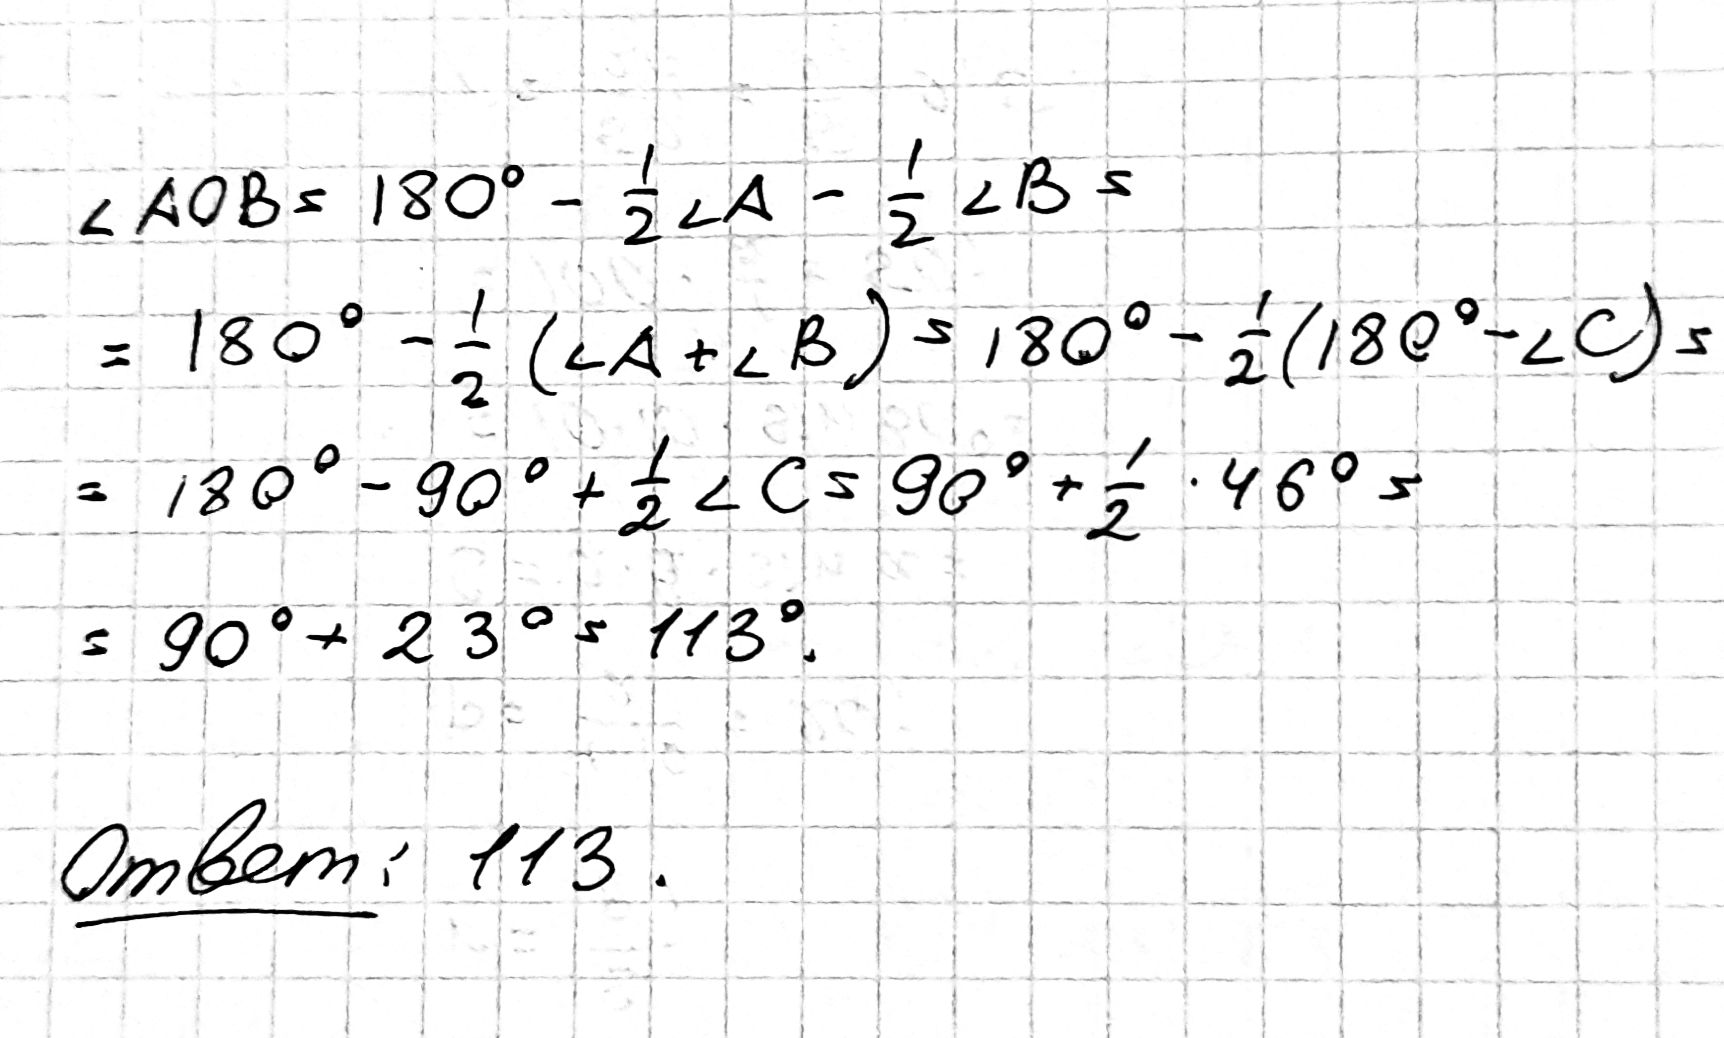 ∠AOB = 180° - 1/2 ∠A - 1/2 ∠B =
= 180° - 1/2 (∠A + ∠B) = 180° - 1/2 (180° - ∠C) =
= 180° - 90° + 1/2 ∠C = 90° + 1/2 · 46° =
= 90° + 23° = 113°.
Ответ: 113.